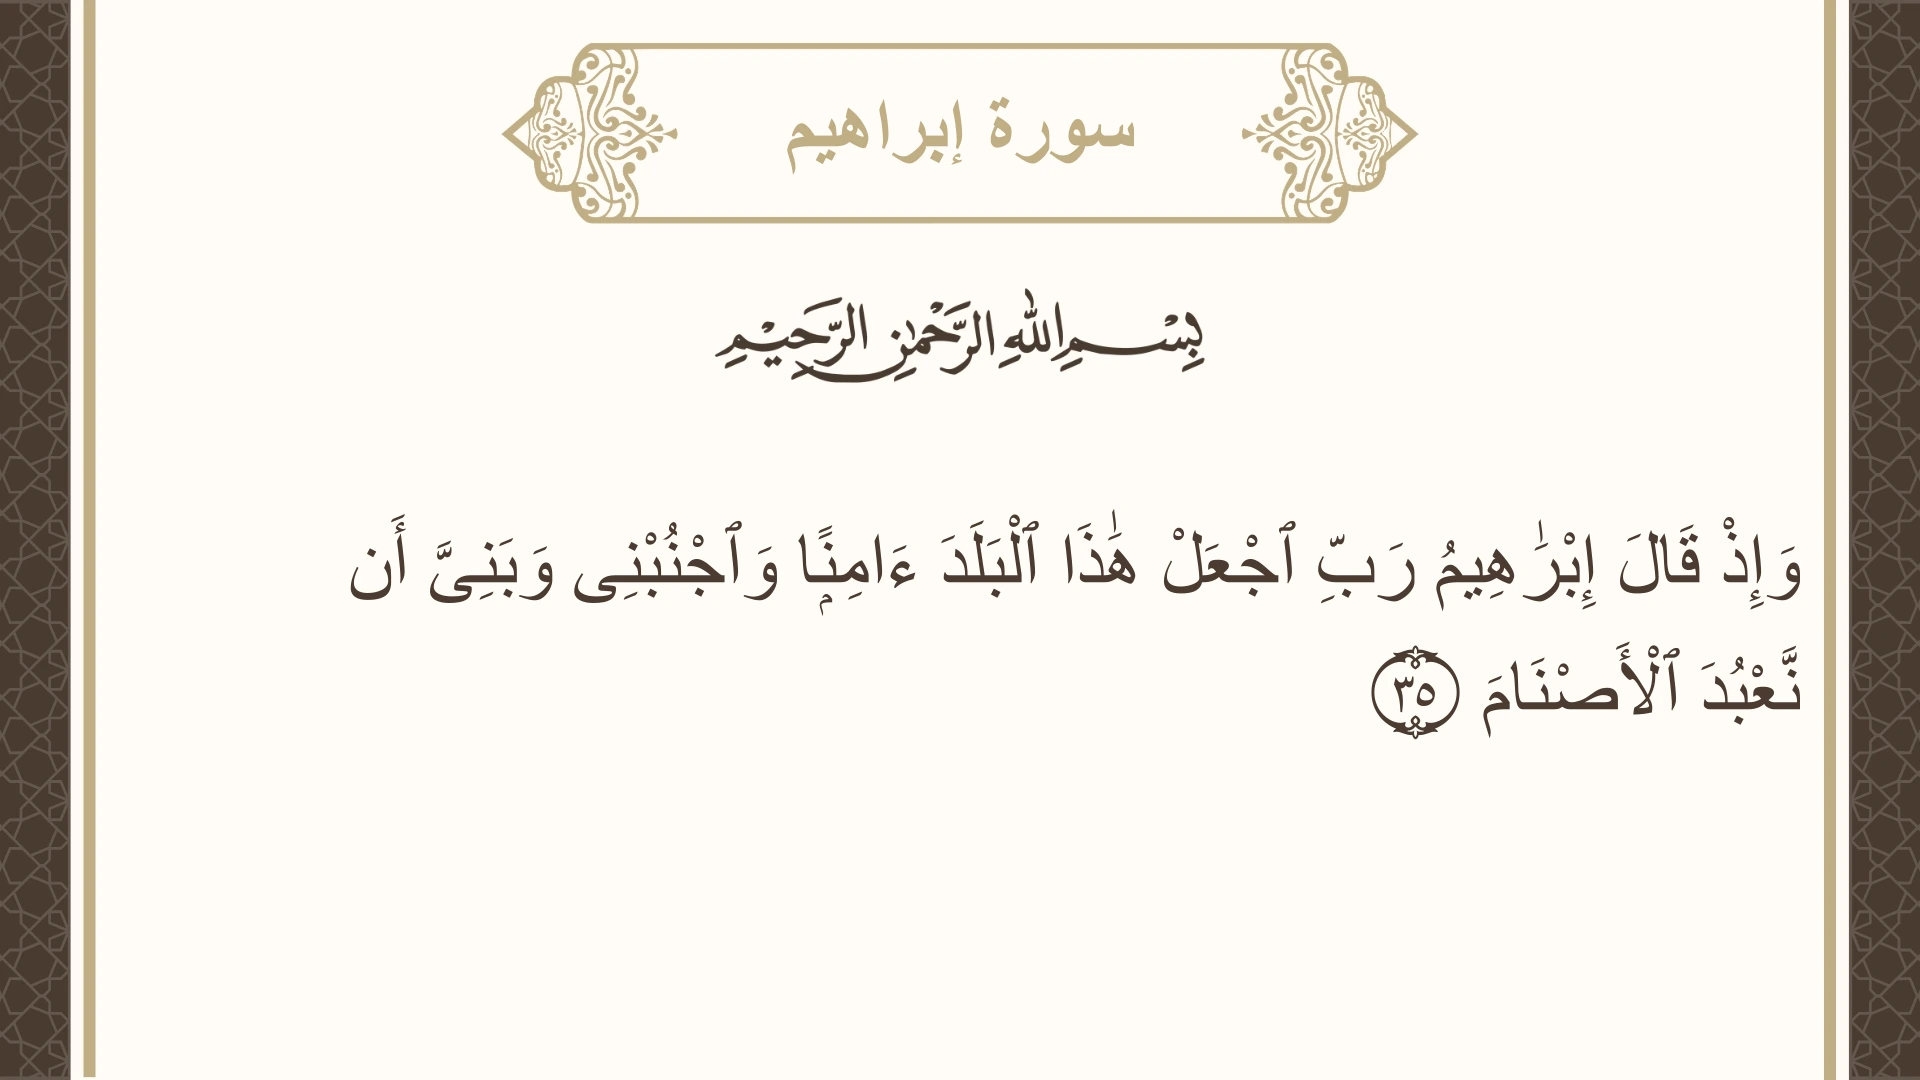 سورة إبراهيم
بِسْمِ اللهِ الرَّحْمٰنِ الرَّحِيْمِ
وَإِذْ قَالَ إِبْرَٰهِيمُ رَبِّ ٱجْعَلْ هَٰذَا ٱلْبَلَدَ ءَامِنًۭا وَٱجْنُبْنِى وَبَنِىَّ أَن
نَّعْبُدَ ٱلْأَصْنَامَ ٣٥